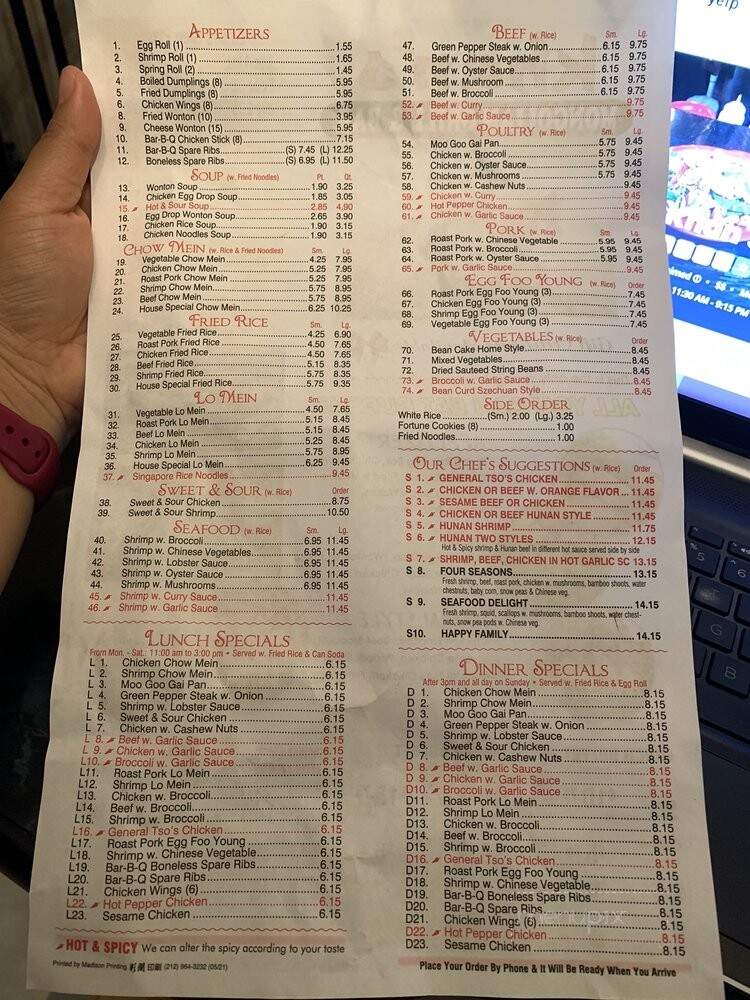 APPETIZERS
1. Egg Roll (1) 1.55
2. Shrimp Roll (1) 1.65
3. Spring Roll (2) 1.45
4. Boiled Dumplings (8) 5.95
5. Fried Dumplings (8) 5.95
6. Chicken Wings (8) 6.75
8. Fried Wonton (10) 3.95
9. Cheese Wonton (15) 5.95
10. Bar-B-Q Chicken Stick (8) 7.15
11. Bar-B-Q Spare Ribs (S) 7.45 (L) 12.25
12. Boneless Spare Ribs (S) 6.95 (L) 11.50
SOUP (w. Fried Noodles) Pt. Qt.
13. Wonton Soup 1.90 3.25
14. Chicken Egg Drop Soup 1.85 3.05
15. Hot & Sour Soup 2.85 4.90
16. Egg Drop Wonton Soup 2.65 3.90
17. Chicken Rice Soup 1.90 3.15
18. Chicken Noodles Soup 1.90 3.15
CHOW MEIN (w. Rice & Fried Noodles) Sm. Lg.
19. Vegetable Chow Mein 4.25 7.95
20. Chicken Chow Mein 5.25 7.95
21. Roast Pork Chow Mein 5.25 7.95
22. Shrimp Chow Mein 5.75 8.95
23. Beef Chow Mein 5.75 8.95
24. House Special Chow Mein 6.25 10.25
FRIED RICE Sm. Lg.
25. Vegetable Fried Rice 4.25 6.90
26. Roast Pork Fried Rice 4.50 7.65
27. Chicken Fried Rice 4.50 7.65
28. Beef Fried Rice 5.15 8.35
29. Shrimp Fried Rice 5.75 8.35
30. House Special Fried Rice 5.75 9.35
LO MEIN Sm. Lg.
31. Vegetable Lo Mein 4.50 7.65
32. Roast Pork Lo Mein 5.15 8.45
33. Beef Lo Mein 5.15 8.45
34. Chicken Lo Mein 5.25 8.45
35. Shrimp Lo Mein 5.75 8.95
36. House Special Lo Mein 6.25 9.45
37. Singapore Rice Noodles 9.45
SWEET & SOUR (w. Rice) Order
38. Sweet & Sour Chicken 8.75
39. Sweet & Sour Shrimp 10.50
SEAFOOD (w. Rice) Sm. Lg.
40. Shrimp w. Broccoli 6.95 11.45
41. Shrimp w. Chinese Vegetables 6.95 11.45
42. Shrimp w. Lobster Sauce 6.95 11.45
43. Shrimp w. Oyster Sauce 6.95 11.45
44. Shrimp w. Mushrooms 6.95 11.45
45. Shrimp w. Curry Sauce 11.45
46. Shrimp w. Garlic Sauce 11.45
LUNCH SPECIALS
From Mon. - Sat.: 11:00 am to 3:00 pm • Served w. Fried Rice & Can Soda
L 1. Chicken Chow Mein 6.15
L 2. Shrimp Chow Mein 6.15
L 3. Moo Goo Gai Pan 6.15
L 4. Green Pepper Steak w. Onion 6.15
L 5. Shrimp w. Lobster Sauce 6.15
L 6. Sweet & Sour Chicken 6.15
L 7. Chicken w. Cashew Nuts 6.15
L 8. Beef w. Garlic Sauce 6.15
L 9. Chicken w. Garlic Sauce 6.15
L10. Broccoli w. Garlic Sauce 6.15
L11. Roast Pork Lo Mein 6.15
L12. Shrimp Lo Mein 6.15
L13. Chicken w. Broccoli 6.15
L14. Beef w. Broccoli 6.15
L15. Shrimp w. Broccoli 6.15
L16. General Tso's Chicken 6.15
L17. Roast Pork Egg Foo Young 6.15
L18. Shrimp w. Chinese Vegetable 6.15
L19. Bar-B-Q Boneless Spare Ribs 6.15
L20. Bar-B-Q Spare Ribs 6.15
L21. Chicken Wings (6) 6.15
L22. Hot Pepper Chicken 6.15
L23. Sesame Chicken 6.15
HOT & SPICY We can alter the spicy according to your taste
Printed by Madison Printing (212) 964-3232 (05/21)
BEEF (w. Rice) Sm. Lg.
47. Green Pepper Steak w. Onion 6.15 9.75
48. Beef w. Chinese Vegetables 6.15 9.75
49. Beef w. Oyster Sauce 6.15 9.75
50. Beef w. Mushroom 6.15 9.75
51. Beef w. Broccoli 6.15 9.75
52. Beef w. Curry 9.75
53. Beef w. Garlic Sauce 9.75
POULTRY (w. Rice) Sm. Lg.
54. Moo Goo Gai Pan 5.75 9.45
55. Chicken w. Broccoli 5.75 9.45
56. Chicken w. Oyster Sauce 5.75 9.45
57. Chicken w. Mushrooms 5.75 9.45
58. Chicken w. Cashew Nuts 9.45
59. Chicken w. Curry 9.45
60. Hot Pepper Chicken 9.45
61. Chicken w. Garlic Sauce 9.45
PORK (w. Rice) Sm. Lg.
62. Roast Pork w. Chinese Vegetable 5.95 9.45
63. Roast Pork w. Broccoli 5.95 9.45
64. Roast Pork w. Oyster Sauce 5.95 9.45
65. Pork w. Garlic Sauce 9.45
EGG FOO YOUNG (w. Rice) Order
66. Roast Pork Egg Foo Young (3) 7.45
67. Chicken Egg Foo Young (3) 7.45
68. Shrimp Egg Foo Young (3) 7.45
69. Vegetable Egg Foo Young (3) 7.45
VEGETABLES (w. Rice) Order
70. Bean Cake Home Style 8.45
71. Mixed Vegetables 8.45
72. Dried Sauteed String Beans 8.45
73. Broccoli w. Garlic Sauce 8.45
74. Bean Curd Szechuan Style 8.45
SIDE ORDER
White Rice (Sm.) 2.00 (Lg.) 3.25
Fortune Cookies (8) 1.00
Fried Noodles 1.00
OUR CHEF'S SUGGESTIONS (w. Rice) Order
S 1. GENERAL TSO'S CHICKEN 11.45
S 2. CHICKEN OR BEEF W. ORANGE FLAVOR 11.45
S 3. SESAME BEEF OR CHICKEN 11.45
S 4. CHICKEN OR BEEF HUNAN STYLE 11.45
S 5. HUNAN SHRIMP 11.75
S 6. HUNAN TWO STYLES 12.15
Hot & Spicy shrimp & Hunan beef in different hot sauce served side by side
S 7. SHRIMP, BEEF, CHICKEN IN HOT GARLIC SC 13.15
S 8. FOUR SEASONS 13.15
Fresh shrimp, beef, roast pork, chicken w. mushrooms, bamboo shoots, water
chestnuts, baby corn, snow peas & Chinese veg.
S 9. SEAFOOD DELIGHT 14.15
Fresh shrimp, squid, scallops w. mushrooms, bamboo shoots, water chest-
nuts, snow pea pods w. Chinese veg.
S10. HAPPY FAMILY 14.15
DINNER SPECIALS
After 3pm and all day on Sunday • Served w. Fried Rice & Egg Roll
D 1. Chicken Chow Mein 8.15
D 2. Shrimp Chow Mein 8.15
D 3. Moo Goo Gai Pan 8.15
D 4. Green Pepper Steak w. Onion 8.15
D 5. Shrimp w. Lobster Sauce 8.15
D 6. Sweet & Sour Chicken 8.15
D 7. Chicken w. Cashew Nuts 8.15
D 8. Beef w. Garlic Sauce 8.15
D 9. Chicken w. Garlic Sauce 8.15
D10. Broccoli w. Garlic Sauce 8.15
D11. Roast Pork Lo Mein 8.15
D12. Shrimp Lo Mein 8.15
D13. Chicken w. Broccoli 8.15
D14. Beef w. Broccoli 8.15
D15. Shrimp w. Broccoli 8.15
D16. General Tso's Chicken 8.15
D17. Roast Pork Egg Foo Young 8.15
D18. Shrimp w. Chinese Vegetable 8.15
D19. Bar-B-Q Boneless Spare Ribs 8.15
D20. Bar-B-Q Spare Ribs 8.15
D21. Chicken Wings (6) 8.15
D22. Hot Pepper Chicken 8.15
D23. Sesame Chicken 8.15
Place Your Order By Phone & It Will Be Ready When You Arrive
yelp
11:30 AM - 9:15 PM